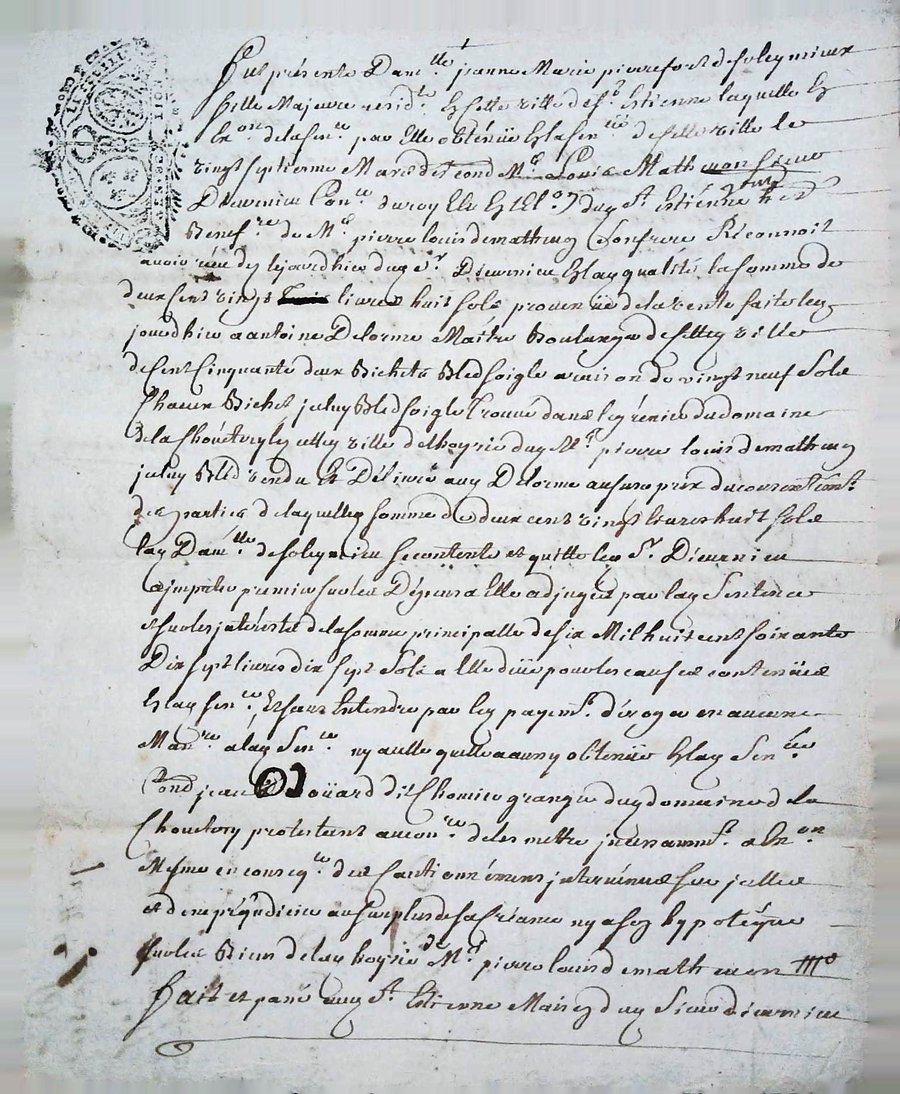 Fut présente Dam.lle jeanne Marie pierrefort desoleymieux
fille Majeure resid.te En cette ville de s.t Estienne laquelle En
Ex.on delasen.ce par Elle obtenüe En la sen.ée decette ville le
vingt septieme Mars d.er Cond M.e Louis Mathevon sieur
Decurnieu Con.er du roy Elu En l'El.on dud s.t Estienne
Benef.re de M.e pierre louis demathevon son frere Reconnoit
avoir reçu de lejourdhier dud s.r Decurnieu En lad qualité la somme de
deux cent vingt livres huit sols provenüe dela vente faite led
jourdhier a antoine Delorme Maitre Boulanger de cetted ville
de Cent Cinquante deux Bichets Bled seigle a raison de vingt neuf sols
Chacun Bichet jceluy Bled seigle trouvé dans le grenier du domaine
dela Chouettery led ville delhoyrie dud M.e pierre louis demathevon
jceluy Bled vendu Et Délivré aud Delorme ausus prix du consentem.t
des parties delaquelle somme de deux cent vingt livres huit sols
lad Dam.lle desoleymieu se contente et quitte led s.r Decurnieu
a jmputer premier sur les Dépens a Elle adjugés par lad Sentence
et sur les jnterests de la somme principalle de six Mil huit cent soixante
Dix sept livres dix sept Sols a Elle düe pour les causes contenües
En lad sen.ce Et sans Entendre par led payem.t déroger en aucune
Man.re a lad Sen.ce ny a celle quelle a aussy obtenüe En lad Sen.ée
Cond jean Doüard dit Chomier granger dud domaine de la
Chouettery protestant au con.re de les mettre jncessamm.t a Ex.on
Mesme en conseq.ce des Cautionnemens jntervenus sur jcelles
et de ne préjudicier au surplus de sa Créance ny a son hypoteque
sur les Biens de lad hoyrie de M.e pierre louis demathevon
Fait et passé aud s.t Estienne Maison dud Sieur decurnieu